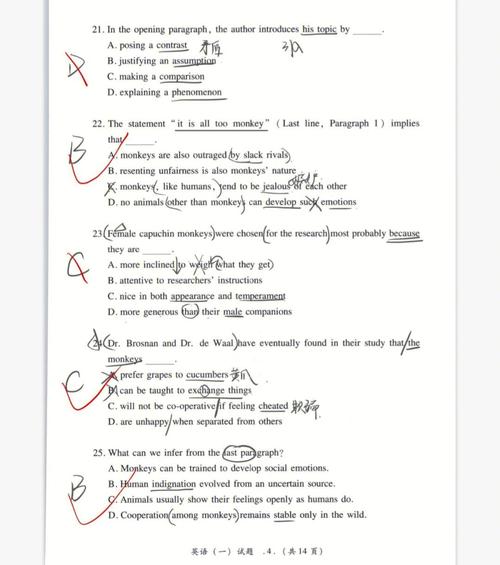 21. In the opening paragraph, the author introduces his topic by ______.
A. posing a contrast 矛盾
B. justifying an assumption
C. making a comparison
D. explaining a phenomenon
D
22. The statement “it is all too monkey” (Last line, Paragraph 1) implies
that ______.
A. monkeys are also outraged by slack rivals
B. resenting unfairness is also monkeys' nature
C. monkeys, like humans, tend to be jealous of each other
D. no animals other than monkeys can develop such emotions
B
23. Female capuchin monkeys were chosen for the research most probably because
they are ______.
A. more inclined to weigh what they get
B. attentive to researchers' instructions
C. nice in both appearance and temperament
D. more generous than their male companions
24. Dr. Brosnan and Dr. de Waal have eventually found in their study that the
monkeys ______.
A. prefer grapes to cucumbers 黄瓜
B. can be taught to exchange things
C. will not be co-operative if feeling cheated 欺骗
D. are unhappy when separated from others
C
25. What can we infer from the last paragraph?
A. Monkeys can be trained to develop social emotions.
B. Human indignation evolved from an uncertain source.
C. Animals usually show their feelings openly as humans do.
D. Cooperation among monkeys remains stable only in the wild.
B
英语（一）试题 .4.（共14页）